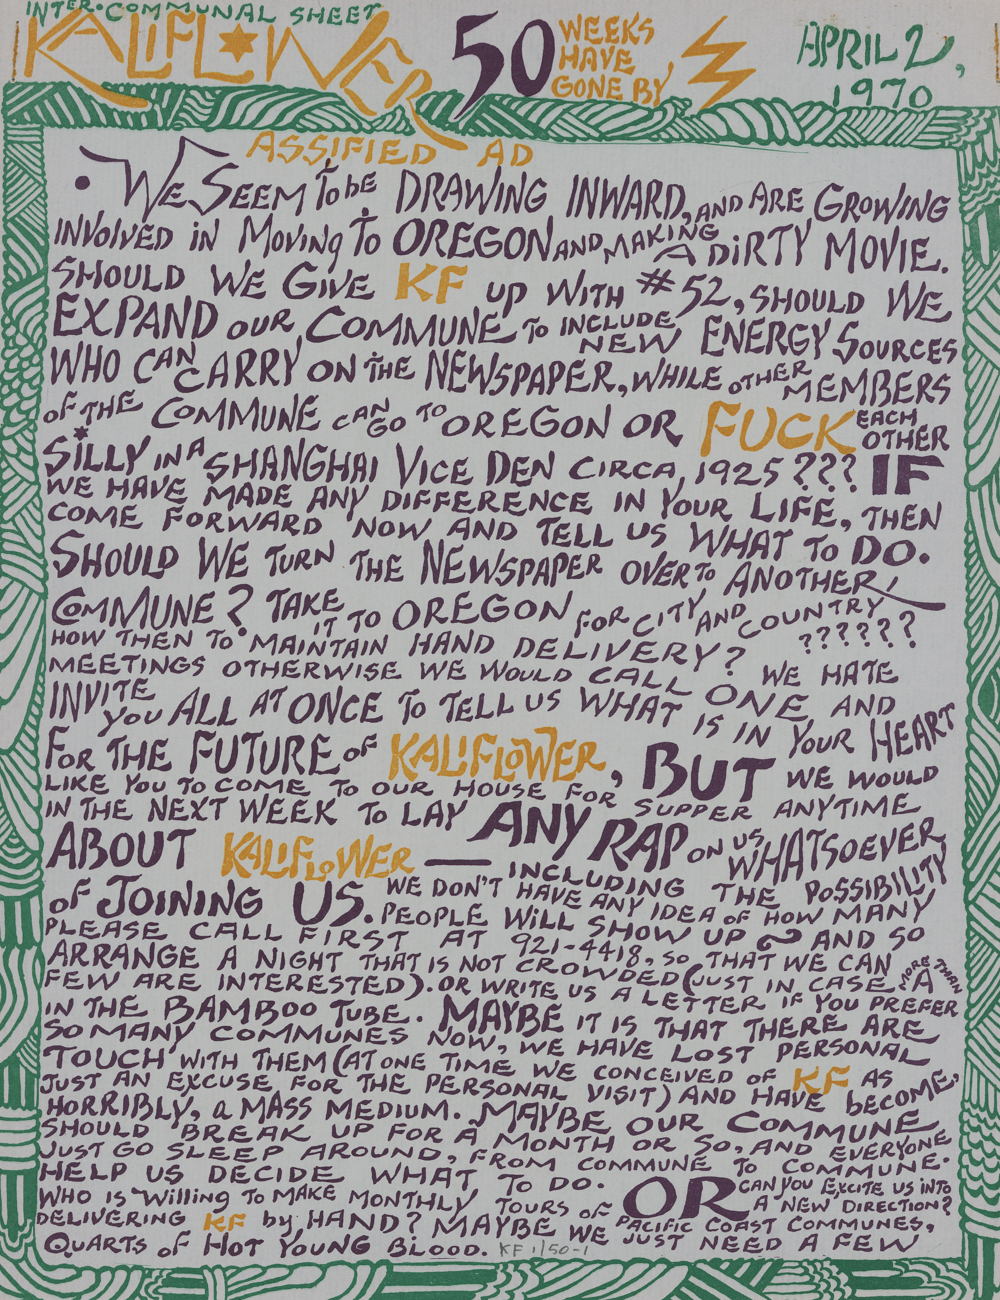 INTER·COMMUNAL SHEET
KALIFLOWER
50 WEEKS HAVE GONE BY
APRIL 2, 1970
ASSIFIED AD
• WE SEEM To bE DRAWING INWARD, AND ARE GROWING
INVOLVED iN MOVING To OREGON AND MAKING A DiRTY MOVIE.
SHOULD WE GIVE KF UP WITH #52, SHOULD WE
EXPAND OUR COMMUNE TO INCLUDE NEW ENERGY SOURCES
WHO CAN CARRY ON THE NEWSPAPER, WHILE OTHER MEMBERS
OF THE COMMUNE CAN GO TO OREGON OR FUCK EACH OTHER
SILLY IN A SHANGHAI VICE DEN CIRCA, 1925??? IF
WE HAVE MADE ANY DIFFERENCE IN YOUR LIFE, THEN
COME FORWARD NOW AND TELL US WHAT TO DO.
SHOULD WE TURN THE NEWSPAPER OVER TO ANOTHER
COMMUNE? TAKE IT TO OREGON FOR CITY AND COUNTRY
HOW THEN TO MAINTAIN HAND DELIVERY? ??????
MEETINGS OTHERWISE WE WOULD CALL ONE AND WE HATE
INVITE YOU ALL AT ONCE TO TELL US WHAT IS IN YOUR HEART
FOR THE FUTURE OF KALIFLOWER, BUT WE WOULD
LIKE YOU TO COME TO OUR HOUSE FOR SUPPER ANYTIME
IN THE NEXT WEEK TO LAY ANY RAP ON US WHATSOEVER
ABOUT KALIFLOWER — INCLUDING THE POSSIBILITY
OF JOINING US. WE DON'T HAVE ANY IDEA OF HOW MANY
PEOPLE WILL SHOW UP ~ AND SO
PLEASE CALL FIRST AT 921-4418, SO THAT WE CAN
ARRANGE A NIGHT THAT IS NOT CROWDED (JUST IN CASE MORE THAN A
FEW ARE INTERESTED). OR WRITE US A LETTER IF YOU PREFER
IN THE BAMBOO TUBE. MAYBE IT IS THAT THERE ARE
SO MANY COMMUNES NOW, WE HAVE LOST PERSONAL
TOUCH WITH THEM (AT ONE TIME WE CONCEIVED OF KF AS
JUST AN EXCUSE FOR THE PERSONAL VISIT) AND HAVE bECOME,
HORRIBLY, a MASS MEDIUM. MAYBE OUR COMMUNE
SHOULD BREAK UP FOR A MONTH OR SO, AND EVERYONE
JUST GO SLEEP AROUND, FROM COMMUNE TO COMMUNE.
HELP US DECIDE WHAT TO DO. OR CAN YOU EXCITE US INTO A NEW DIRECTION?
WHO IS WILLING TO MAKE MONTHLY TOURS OF PACIFIC COAST COMMUNES,
DELIVERING KF by HAND? MAYBE WE JUST NEED A FEW
QUARTS OF HOT YOUNG BLOOD. KF 1/50-1